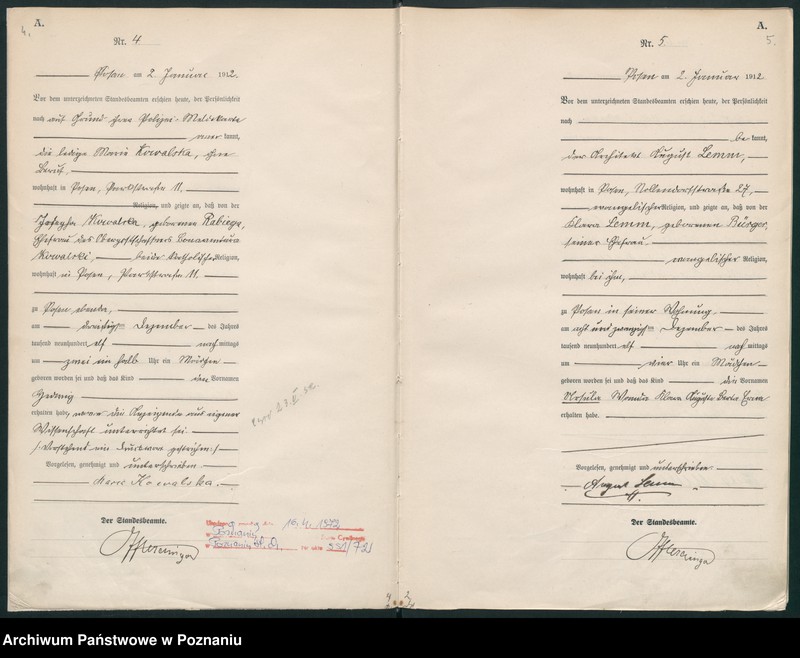 4.
A.
Nr. 4
Posen am 2. Januar 1912.
Vor dem unterzeichneten Standesbeamten erschien heute, der Persönlichkeit
nach auf Grund ihrer Polizei-Meldekarte
aner kannt,
die ledige Maria Kowalska, ohne
Beruf,
wohnhaft in Posen, 11.
Religion, und zeigte an, daß von der
Josepha Kowalska, geborenen
Ehefrau des
Kowalski, beide katholischer Religion,
wohnhaft in Posen, 11.
zu Posen ebenda,
am dreißigsten Dezember des Jahres
tausend neunhundert elf nachmittags
um zwei ein halb Uhr ein Mädchen
geboren worden sei und daß das Kind den Vornamen
Hedwig
erhalten habe, wovon die Anzeigende aus eigener
Wissenschaft unterrichtet sei
/: Vorstehend ein Druckwort gestrichen :/
Vorgelesen, genehmigt und unterschrieben
Kowalska.
Der Standesbeamte.
16.4.1972
Poznań
331/72
A.
5.
Nr. 5
Posen am 2. Januar 1912.
Vor dem unterzeichneten Standesbeamten erschien heute, der Persönlichkeit
nach
be kannt,
der Architekt August Lemm,
wohnhaft in Posen, Nollendorfstraße 27,
evangelischer Religion, und zeigte an, daß von der
Klara Lemm, geborenen Bürger,
seiner Ehefrau
evangelischer Religion,
wohnhaft bei ihm,
zu Posen in seiner Wohnung
am acht und zwanzigsten Dezember des Jahres
tausend neunhundert elf nachmittags
um vier Uhr ein Mädchen
geboren worden sei und daß das Kind die Vornamen
Ursula Wanda Klara Auguste Berta Erna
erhalten habe.
Vorgelesen, genehmigt und unterschrieben
August Lemm
Der Standesbeamte.
Archiwum Państwowe w Poznaniu